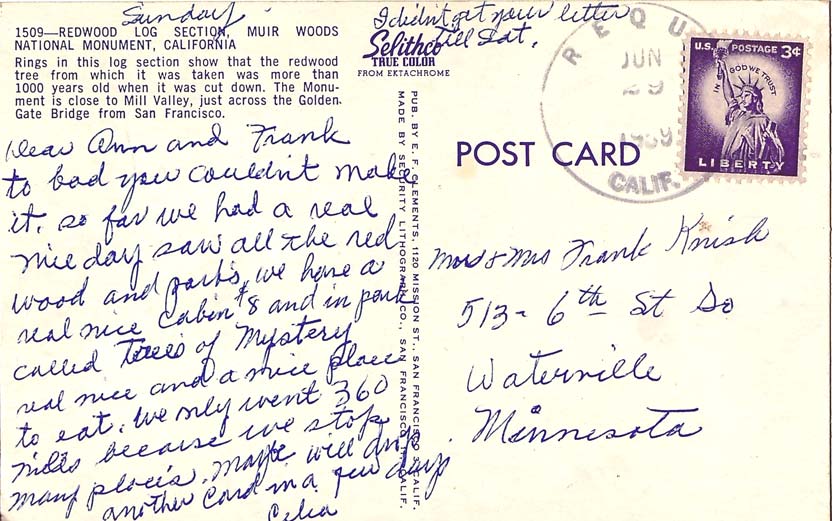 Sunday
1509—REDWOOD LOG SECTION, MUIR WOODS
NATIONAL MONUMENT, CALIFORNIA
Rings in this log section show that the redwood
tree from which it was taken was more than
1000 years old when it was cut down. The Monu-
ment is close to Mill Valley, just across the Golden
Gate Bridge from San Francisco.
I didn't get your letter
till Sat.
Selithco
TRUE COLOR
FROM EKTACHROME
Dear Ann and Frank
to bad you couldn't make
it, so far we had a real
nice day saw all the red
wood and parks, we have a
real nice Cabin #8 and in park
called Trees of Mystery
real nice and a nice place
to eat. We only went 360
miles because we stop
many places. Maybe will
another card in a few days
Celia
PUB. BY E. F. CLEMENTS, 1120 MISSION ST., SAN FRANCISCO 3, CALIF.
MADE BY SECURITY LITHOGRAPH CO., SAN FRANCISCO, CALIF.
POST CARD
REQU
JUN
29
1959
CALIF.
U.S. POSTAGE 3¢
IN GOD WE TRUST
LIBERTY
Mr & Mrs Frank Knish
513 - 6th St So
Waterville
Minnesota